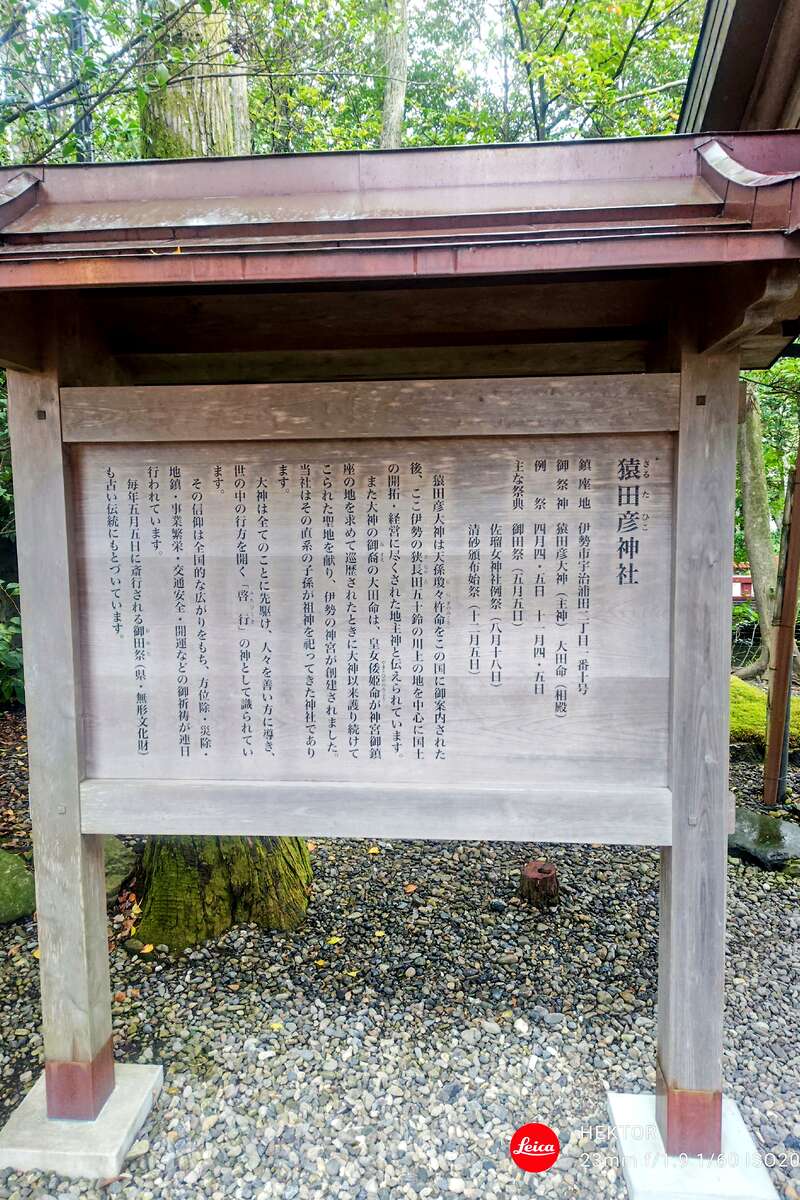 猿田彦神社
さるたひこ
鎮座地 伊勢市宇治浦田二丁目一番十号
御祭神 猿田彦大神(主神) 大田命(相殿)
例祭 四月四・五日 十一月四・五日
主な祭典 御田祭(五月五日)
佐瑠女神社例祭(八月十八日)
清砂頒布始祭(十二月五日)
猿田彦大神は天孫瓊々杵命をこの国に御案内された
後、ここ伊勢の狭長田五十鈴の川上の地を中心に国土
の開拓・経営に尽くされた地主神と伝えられています。
また大神の御裔の大田命は、皇女倭姫命が神宮御鎮
座の地を求めて巡歴されたときに大神以来護り続けて
こられた聖地を献り、伊勢の神宮が創建されました。
当社はその直系の子孫が祖神を祀ってきた神社であり
ます。
大神は全てのことに先駆け、人々を善い方に導き、
世の中の行方を開く「啓行」の神として識られてい
ます。
その信仰は全国的な広がりをもち、方位除・災除・
地鎮・事業繁栄・交通安全・開運などの御祈祷が連日
行われています。
毎年五月五日に斎行される御田祭(県・無形文化財)
も古い伝統にもとづいています。
Leica
HEKTOR
23mm f/1.9 1/60 ISO20